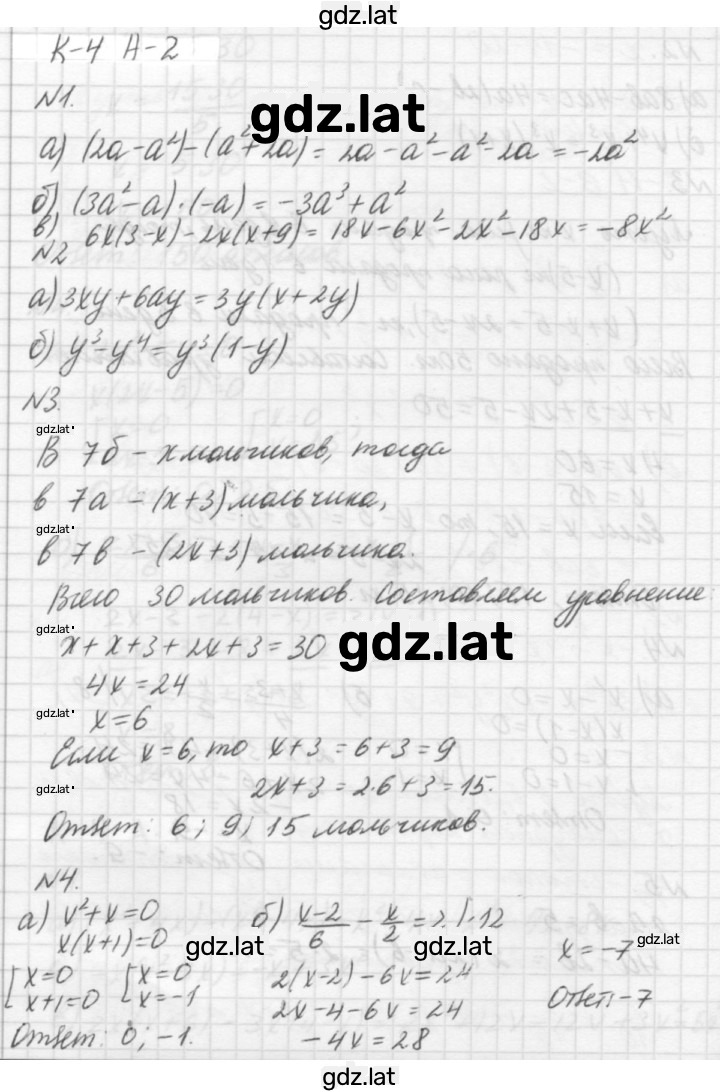 gdz.lat
К-4 А-2
№1.
gdz.lat
а) (2a-a²)-(a²+2a)= 2a-a²-a²-2a=-2a²
б) (3a²-a)·(-a)=-3a³+a²
в) 6x(3-x)-2x(x+9)=18x-6x²-2x²-18x=-8x²
№2
а) 3xy+6ay=3y(x+2y)
б) y³-y⁴=y³(1-y)
№3.
gdz.lat
В 7б - x мальчиков, тогда
в 7а - (x+3) мальчика,
gdz.lat
в 7в - (2x+3) мальчика.
Всего 30 мальчиков. Составляем уравнение:
gdz.lat
x+x+3+2x+3=30
gdz.lat
4x=24
gdz.lat
x=6
Если x=6, то x+3=6+3=9
gdz.lat
2x+3=2·6+3=15.
Ответ: 6; 9; 15 мальчиков.
№4.
а) x²+x=0
x(x+1)=0
[x=0 [x=0
x+1=0 x=-1
Ответ: 0; -1.
б) (x-2)/6 - x/2 = 2 |·12
gdz.lat
gdz.lat
2(x-2)-6x=24
2x-4-6x=24
-4x=28
x=-7
gdz.lat
Ответ: -7
gdz.lat